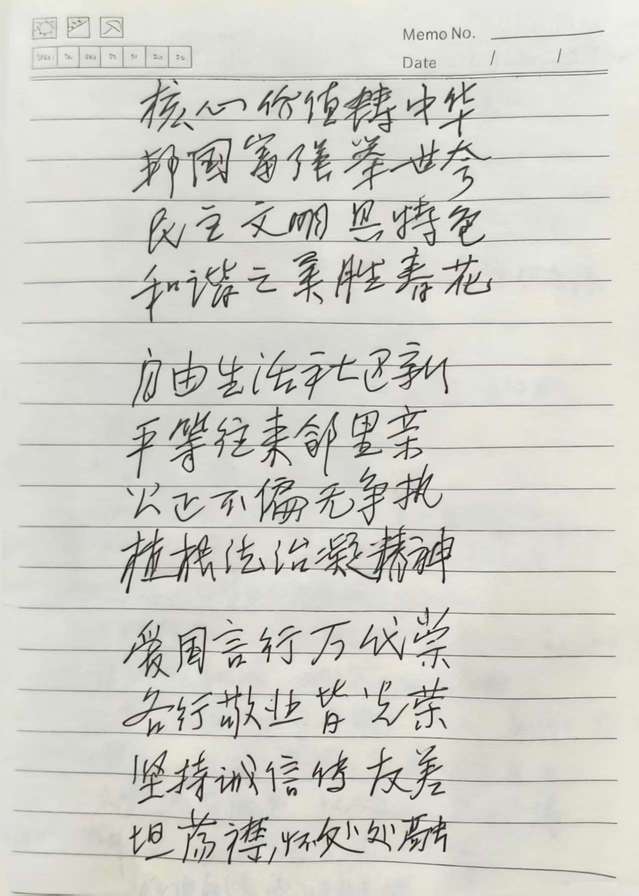 Memo No.
Date / /
核心价值铸中华
邦国富强举世夸
民主文明具特色
和谐之美胜春花
自由生活社区新
平等往来邻里亲
公正不偏无争执
植根法治凝精神
爱国言行万代崇
各行敬业皆光荣
坚持诚信待友善
坦荡襟怀处处融